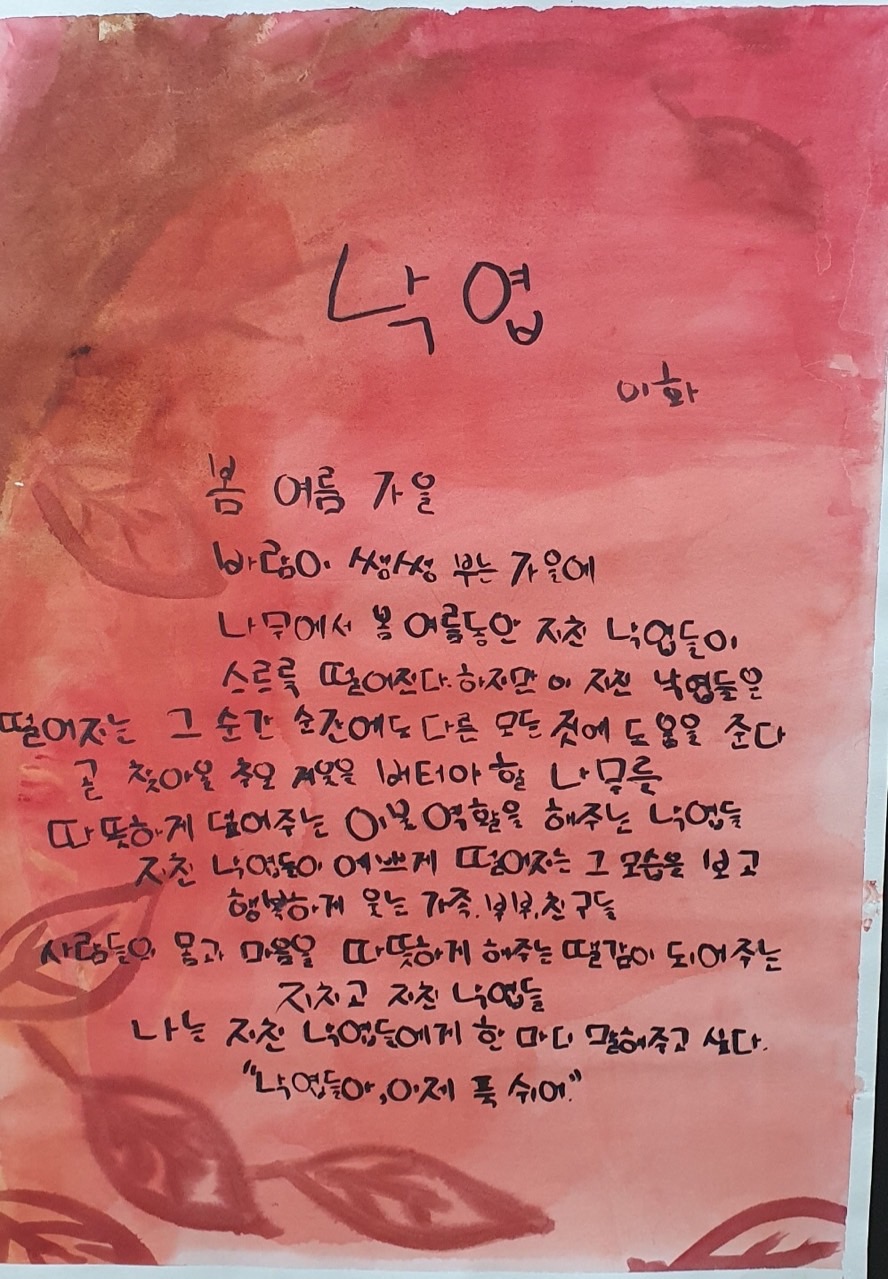 낙엽
이화
봄 여름 가을
바람이 쌩쌩 부는 가을에
나무에서 봄 여름동안 지친 낙엽들이
스르륵 떨어진다.하지만 이 지친 낙엽들은
떨어지는 그 순간 순간에도 다른 모든 것에 도움을 준다
곧 찾아올 추운 겨울을 버텨야 할 나무를
따뜻하게 덮어주는 이불 역할을 해주는 낙엽들
지친 낙엽들이 예쁘게 떨어지는 그 모습을 보고
행복하게 웃는 가족,부부,친구들
사람들의 몸과 마음을 따뜻하게 해주는 땔감이 되어주는
지치고 지친 낙엽들
나는 지친 낙엽들에게 한 마디 말해주고 싶다.
"낙엽들아,이제 푹 쉬어."